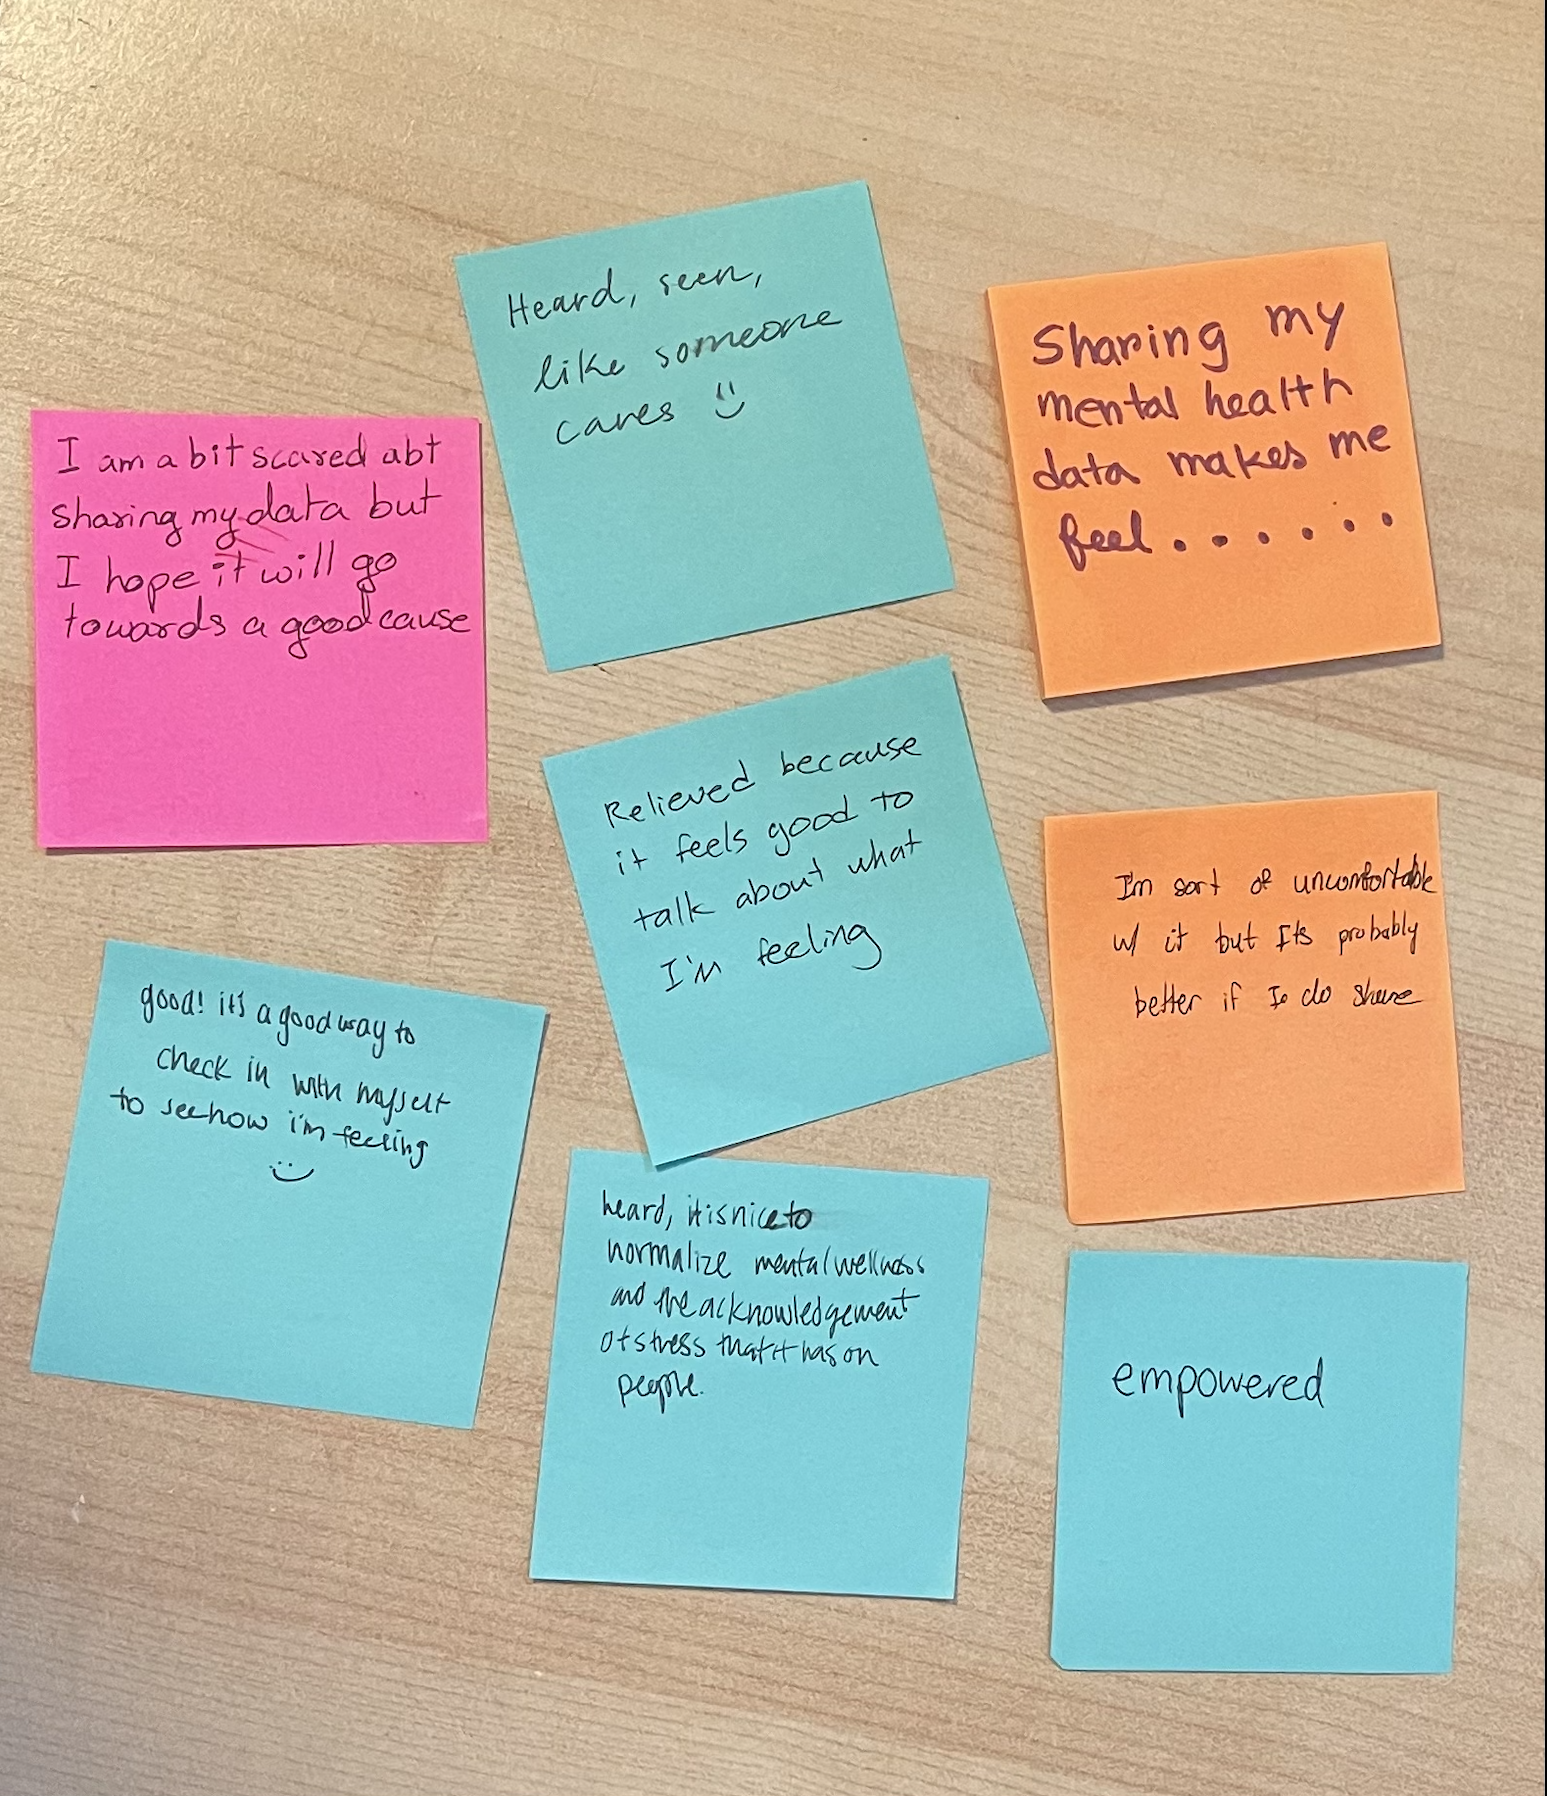 Heard, seen,
like someone
cares
Sharing my
mental health
data makes me
feel......
I am a bit scared abt
sharing my data but
I hope it will go
towards a good cause
Relieved because
it feels good to
talk about what
I'm feeling
I'm sort of uncomfortable
w/ it but Its probably
better if I do share
good! it's a good way to
check in with myself
to see how i'm feeling
heard, it is nice to
normalize mental wellness
and the acknowledgement
of stress that it has on
people.
empowered